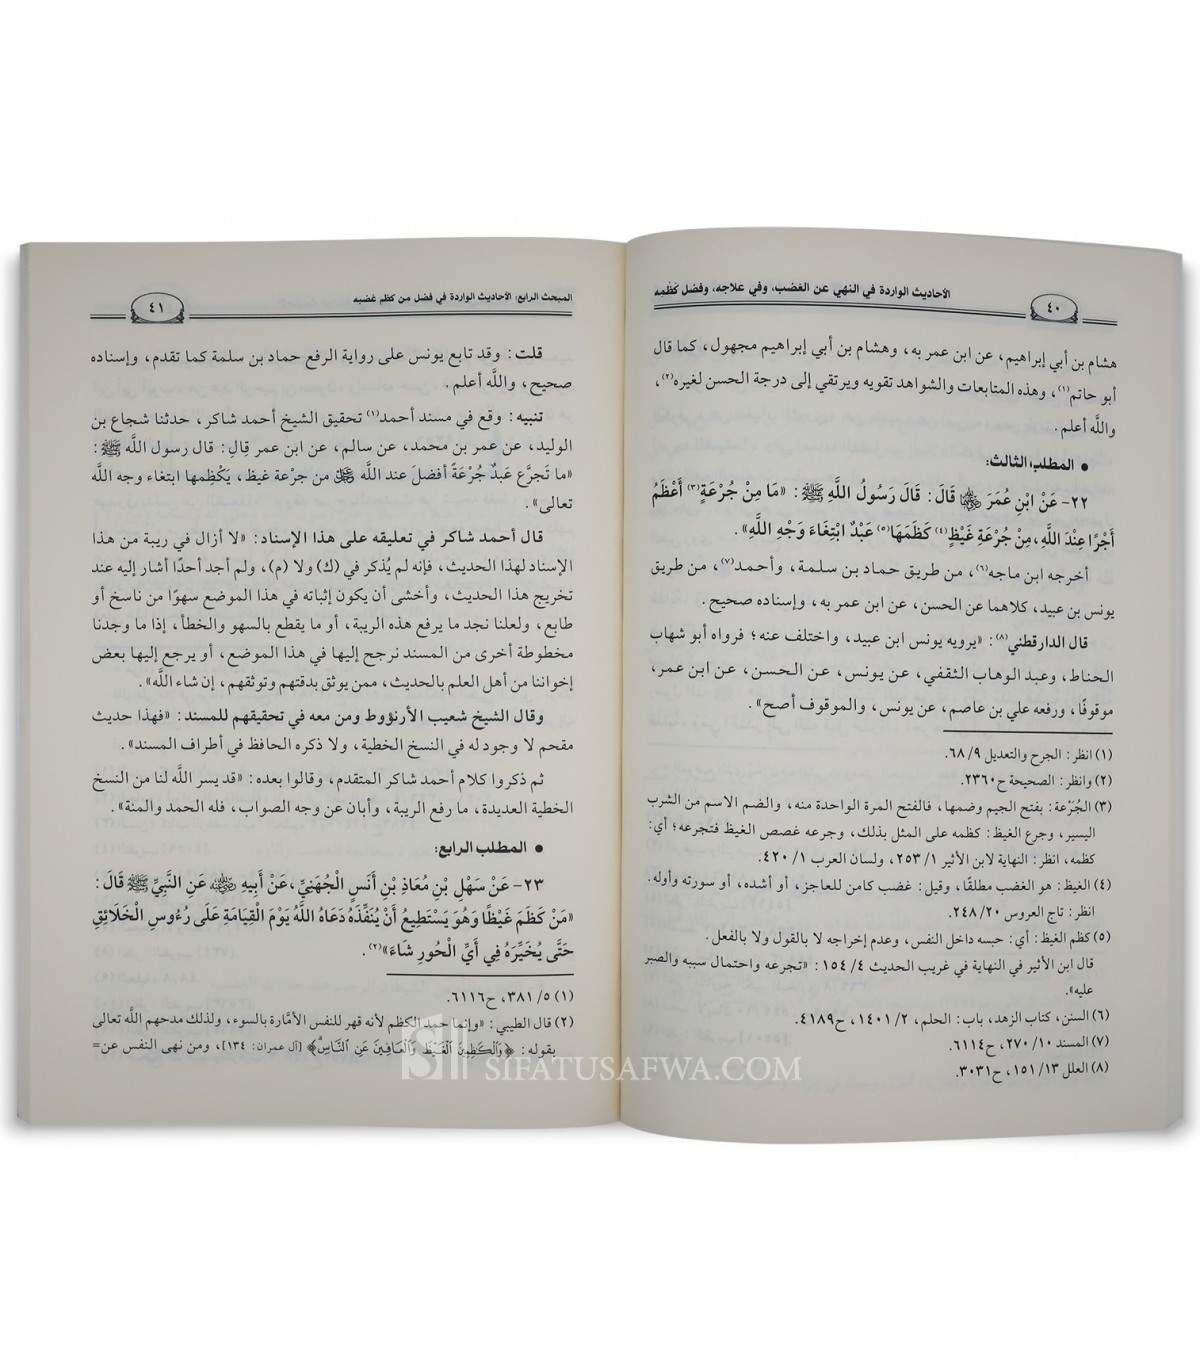 ٤٠
الأحاديث الواردة في النهي عن الغضب، وفي علاجه، وفضل كظمه
هشام بن أبي إبراهيم، عن ابن عمر به، وهشام بن أبي إبراهيم مجهول، كما قال
أبو حاتم(١)، وهذه المتابعات والشواهد تقويه ويرتقي إلى درجة الحسن لغيره(٢)،
واللَّه أعلم.
• المطلب الثالث:
٢٢- عَنْ ابْنِ عُمَرَ ﵄ قَالَ: قَالَ رَسُولُ اللَّهِ ﷺ: «مَا مِنْ جُرْعَةٍ(٣) أَعْظَمُ
أَجْرًا عِنْدَ اللَّهِ، مِنْ جُرْعَةِ غَيْظٍ(٤) كَظَمَهَا(٥) عَبْدٌ ابْتِغَاءَ وَجْهِ اللَّهِ».
أخرجه ابن ماجه(٦)، من طريق حماد بن سلمة، وأحمد(٧)، من طريق
يونس بن عبيد، كلاهما عن الحسن، عن ابن عمر به، وإسناده صحيح.
قال الدارقطني(٨): «يرويه يونس ابن عبيد، واختلف عنه؛ فرواه أبو شهاب
الحناط، وعبد الوهاب الثقفي، عن يونس، عن الحسن، عن ابن عمر،
موقوفًا، ورفعه علي بن عاصم، عن يونس، والموقوف أصح».
(١) انظر: الجرح والتعديل ٩/ ٦٨.
(٢) وانظر: الصحيحة ح٢٣٦٠.
(٣) الجُرْعة: بفتح الجيم وضمها، فالفتح المرة الواحدة منه، والضم الاسم من الشرب
اليسير، وجرع الغيظ: كظمه على المثل بذلك، وجرعه غصص الغيظ فتجرعه؛ أي:
كظمه، انظر: النهاية لابن الأثير ١/ ٢٥٣، ولسان العرب ١/ ٤٢٠.
(٤) الغيظ: هو الغضب مطلقًا، وقيل: غضب كامن للعاجز، أو أشده، أو سورته وأوله.
انظر: تاج العروس ٢٠/ ٢٤٨.
(٥) كظم الغيظ: أي: حبسه داخل النفس، وعدم إخراجه لا بالقول ولا بالفعل.
قال ابن الأثير في النهاية في غريب الحديث ٤/ ١٥٤: «تجرعه واحتمال سببه والصبر
عليه».
(٦) السنن، كتاب الزهد، باب: الحلم، ٢/ ١٤٠١، ح٤١٨٩.
(٧) المسند ١٠/ ٢٧٠، ح٦١١٤.
(٨) العلل ١٣/ ١٥١، ح٣٠٣١.
المبحث الرابع: الأحاديث الواردة في فضل من كظم غضبه
٤١
قلت: وقد تابع يونس على رواية الرفع حماد بن سلمة كما تقدم، وإسناده
صحيح، واللَّه أعلم.
تنبيه: وقع في مسند أحمد(١) تحقيق الشيخ أحمد شاكر، حدثنا شجاع بن
الوليد، عن عمر بن محمد، عن سالم، عن ابن عمر قال: قال رسول اللَّه ﷺ:
«ما تَجرَّع عَبدٌ جُرْعَةً أفضلَ عند اللَّه ﷿ من جرْعة غيظ، يَكْظِمها ابتغاء وجه اللَّه
تعالى».
قال أحمد شاكر في تعليقه على هذا الإسناد: «لا أزال في ريبة من هذا
الإسناد لهذا الحديث، فإنه لم يُذكر في (ك) ولا (م)، ولم أجد أحدًا أشار إليه عند
تخريج هذا الحديث، وأخشى أن يكون إثباته في هذا الموضع سهوًا من ناسخ أو
طابع، ولعلنا نجد ما يرفع هذه الريبة، أو ما يقطع بالسهو والخطأ، إذا ما وجدنا
مخطوطة أخرى من المسند نرجح إليها في هذا الموضع، أو يرجع إليها بعض
إخواننا من أهل العلم بالحديث، ممن يوثق بدقتهم وتوثقهم، إن شاء اللَّه».
وقال الشيخ شعيب الأرنؤوط ومن معه في تحقيقهم للمسند: «فهذا حديث
مقحم لا وجود له في النسخ الخطية، ولا ذكره الحافظ في أطراف المسند».
ثم ذكروا كلام أحمد شاكر المتقدم، وقالوا بعده: «قد يسر اللَّه لنا من النسخ
الخطية العديدة، ما رفع الريبة، وأبان عن وجه الصواب، فله الحمد والمنة».
• المطلب الرابع:
٢٣- عَنْ سَهْلِ بْنِ مُعَاذِ بْنِ أَنَسٍ الْجُهَنِيِّ، عَنْ أَبِيهِ ﵁ عَنِ النَّبِيِّ ﷺ قَالَ:
«مَنْ كَظَمَ غَيْظًا وَهُوَ يَسْتَطِيعُ أَنْ يُنَفِّذَهُ دَعَاهُ اللَّهُ يَوْمَ الْقِيَامَةِ عَلَى رُءُوسِ الْخَلَائِقِ
حَتَّى يُخَيِّرَهُ فِي أَيِّ الْحُورِ شَاءَ»(٢).
(١) ٥/ ٣٨١، ح٦١١٦.
(٢) قال الطيبي: «وإنما حمد الكظم لأنه قهر للنفس الأمَّارة بالسوء، ولذلك مدحهم اللَّه تعالى
بقوله: ﴿وَالْكَاظِمِينَ الْغَيْظَ وَالْعَافِينَ عَنِ النَّاسِ﴾ [آل عمران: ١٣٤]، ومن نهى النفس عن=
SIFATUSAFWA.COM